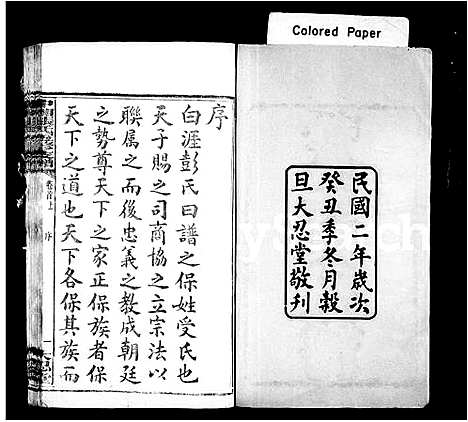 Colored Paper
民國二年歲次
癸丑季冬月穀
旦大忍堂敬刋
序
白湹彭氏曰譜之保姓受氏也
天子賜之司商協之立宗法以
聯属之而後忠義之教成朝廷
之勢尊天下之家正保族者保
天下之道也天下各保其族而
卷首上
序
一